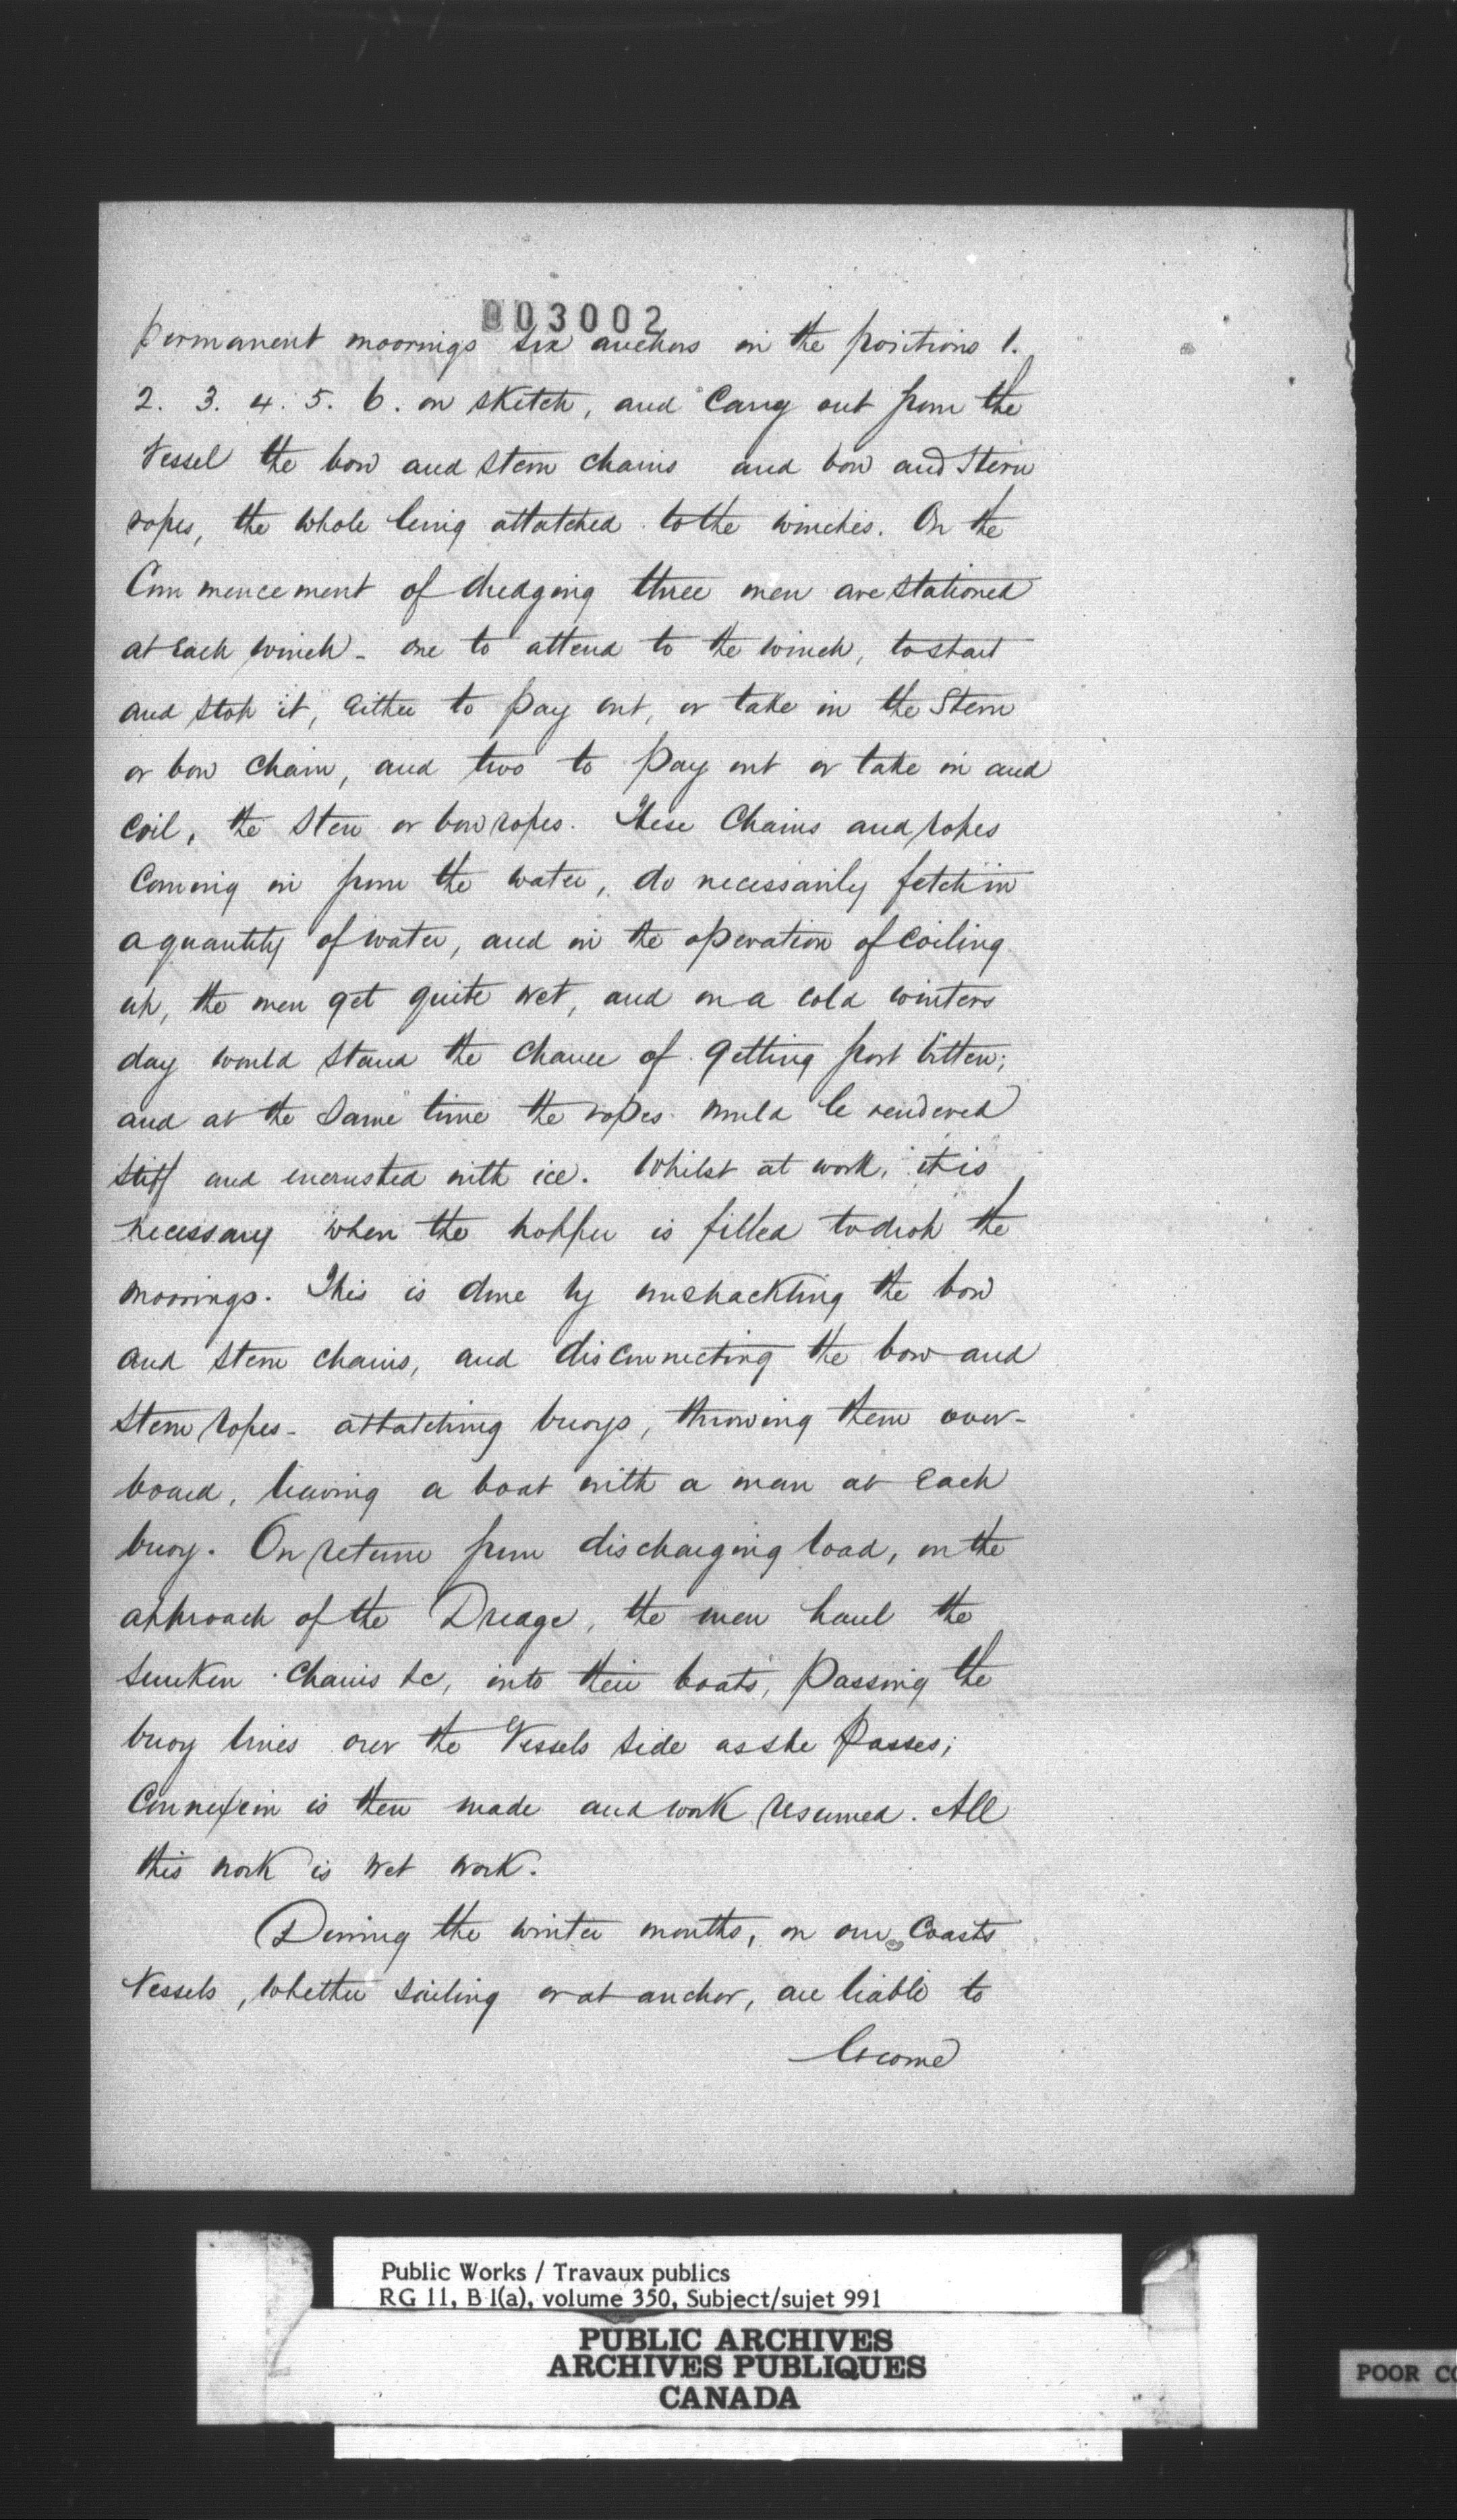 003002
permanent moorings six anchors in the positions 1.
2. 3. 4. 5. 6. on sketch, and Carry out from the
Vessel the bow and stern chains and bow and Stern
ropes, the whole being attatched to the winches. On the
Commencement of dredging three men are stationed
at Each winch - one to attend to the winch, to start
and stop it, Either to pay out, or take in the Stern
or bow chain, and two to pay out or take in and
Coil, the Stern or bow ropes. These Chains and ropes
Coming in from the water, do necessarily fetch in
a quantity of water, and in the operation of Coiling
up, the men get quite wet, and on a cold winters
day would stand the chance of getting frost bitten;
and at the same time the ropes would be rendered
stiff and encrusted with ice. Whilst at work, it is
necessary when the hopper is filled to drop the
moorings. This is done by unshackling the bow
and stern chains, and disconnecting the bow and
stern ropes - attatching buoys, throwing them over-
board, leaving a boat with a man at Each
buoy. On return from discharging load, on the
approach of the Dredge, the men haul the
sunken Chains &c, into their boats, passing the
buoy lines over the Vessels side as she passes;
Connexion is then made and work resumed. All
this work is wet work.
During the winter months, on our Coasts
Vessels, whether sailing or at anchor, are liable to
become
Public Works / Travaux publics
RG 11, B 1(a), volume 350, Subject/sujet 991
PUBLIC ARCHIVES
ARCHIVES PUBLIQUES
CANADA
POOR CO